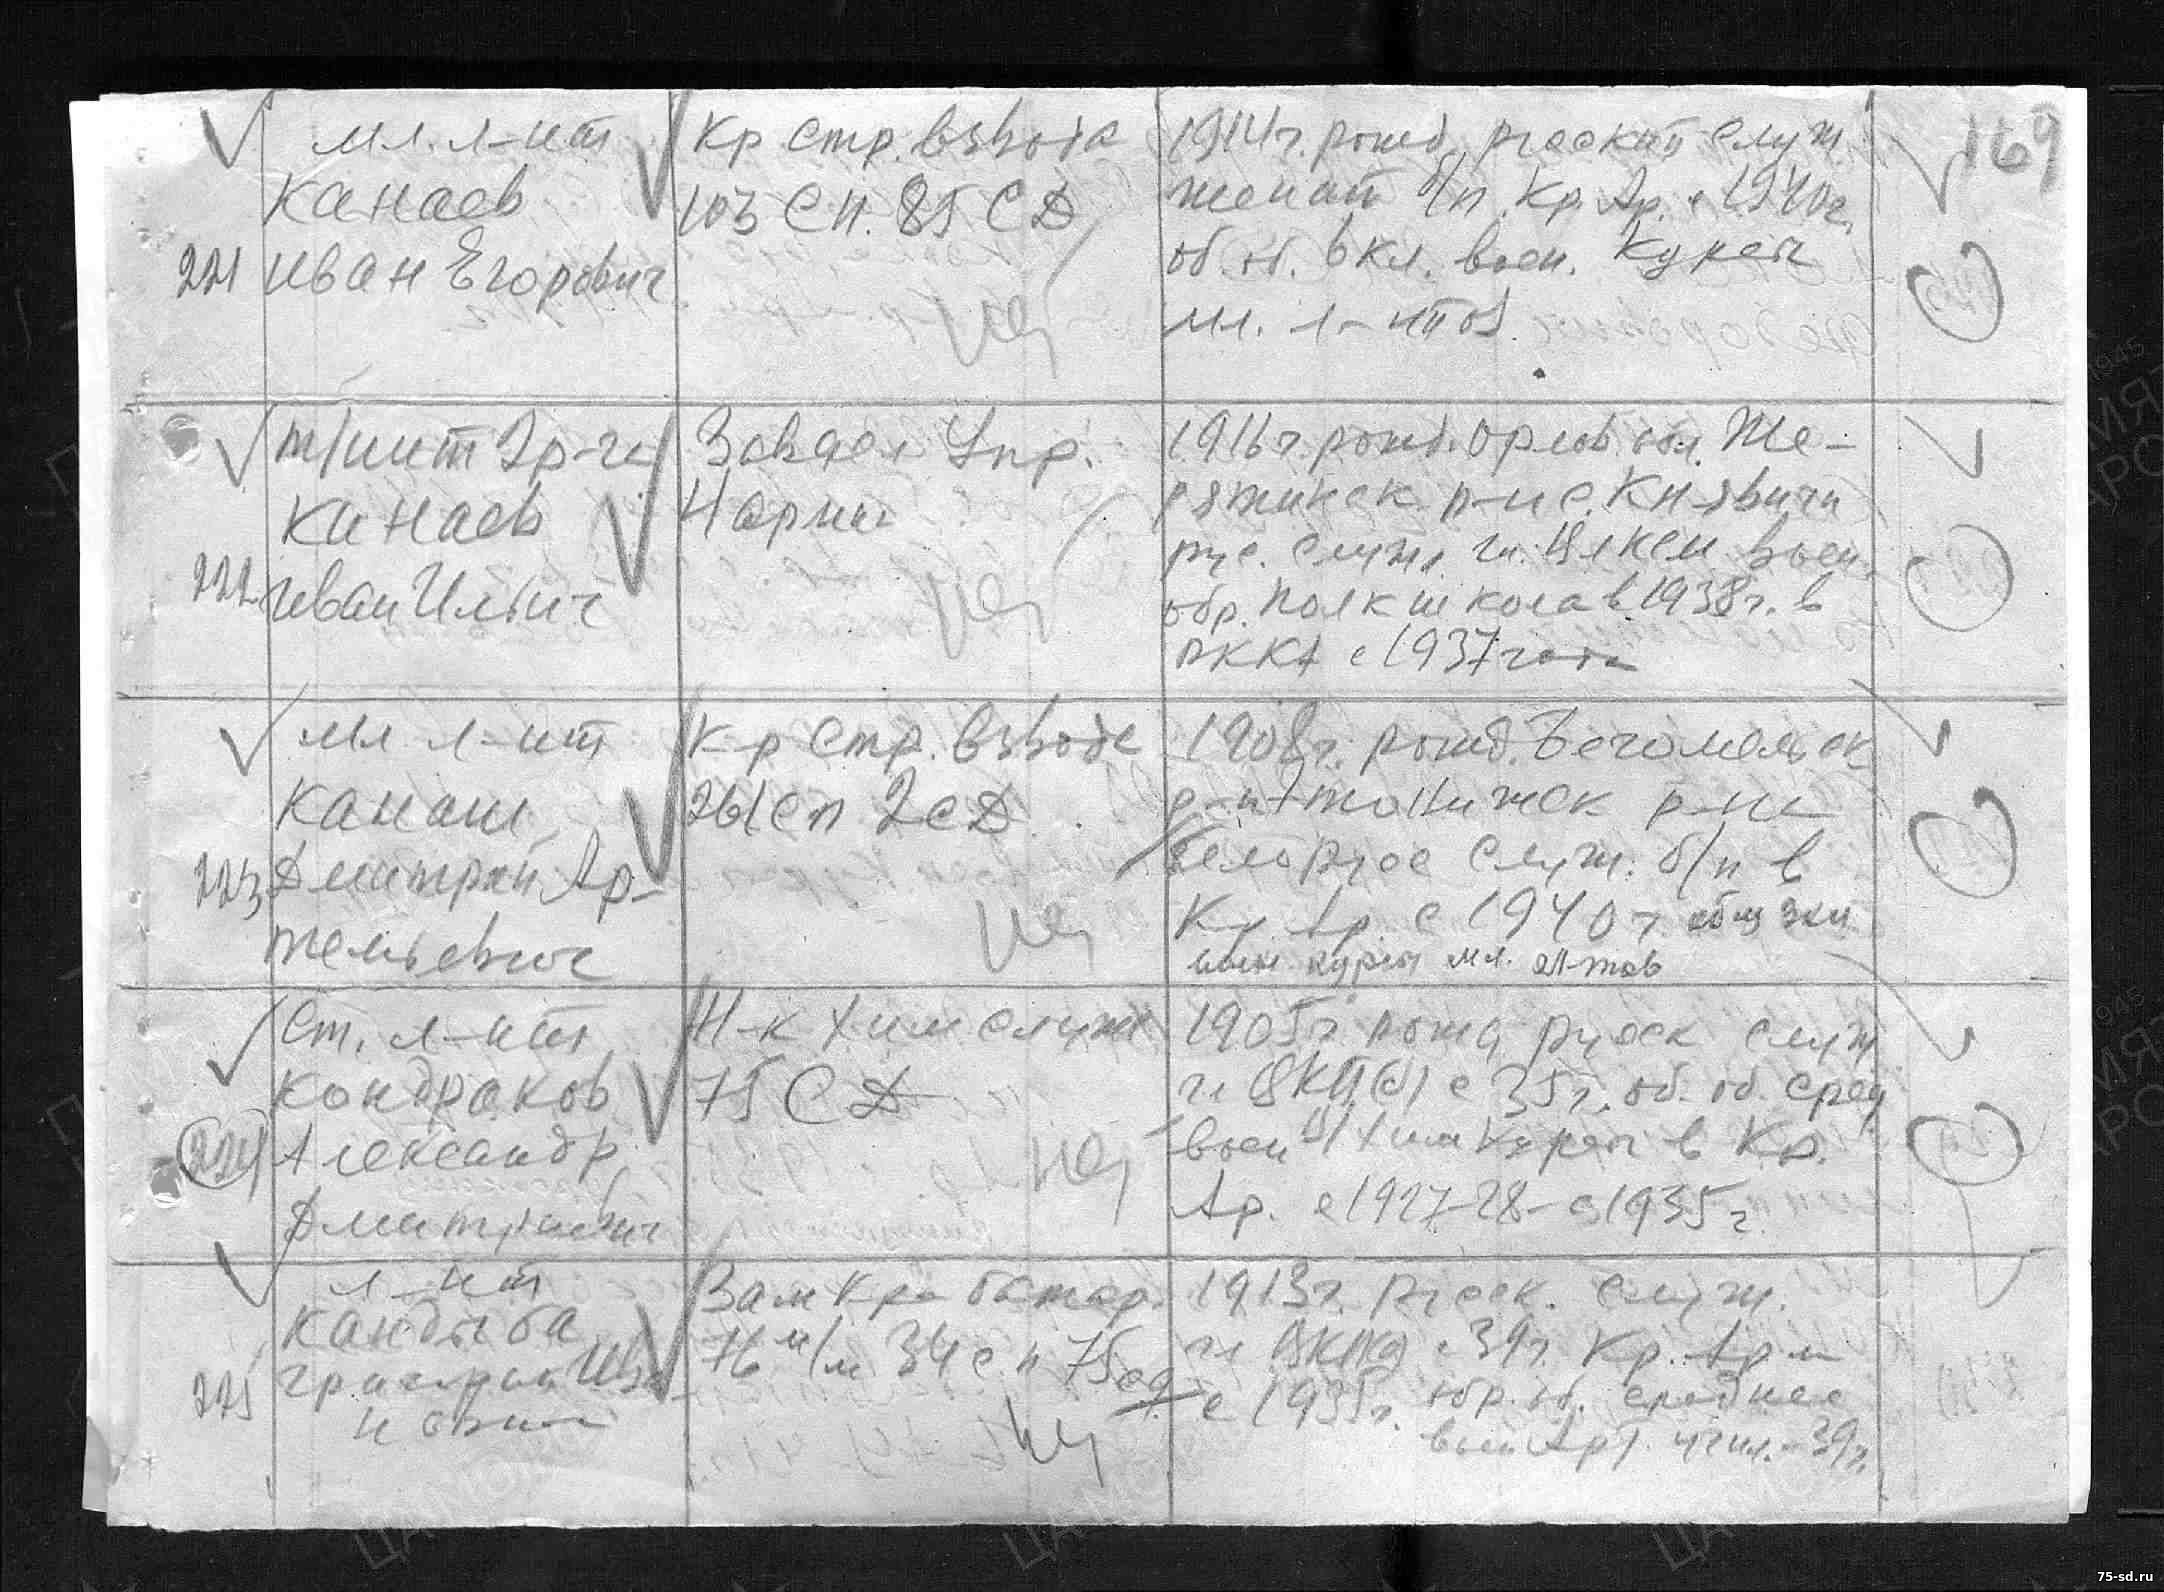 169
мл. л-нт
Канаев
221 Иван Егорович
Кр стр. взвода
103 СП. 85 СД
1914г. рожд. русский служ
женат б/п Кр. Ар. с 1940г.
об. об. 6 кл. воен. Курсы
мл. л-нтов
Канаев
222 Иван Ильич
Завдел Упр.
4 Армии
1916г. рожд. Орлов. обл. Же-
рятинск р-н с. Княвичи
рус. служ. чл. ВЛКСМ воен.
обр. полк школа в 1938г. в
РККА с 1937 года
мл л-нт
Канаш
223 Дмитрий Ар-
тельевич
К-р стр. взвода
261 сп 2 СД
1908г. рожд. Бегомельск
р-на
белорус служ. б/п в
Кр Ар с 1940 г
курсы мл. л-тов
Ст. л-нт
Кондраков
224 Александр
Дмитриевич
Н-к Хим служ
75 СД
1905г. рожд русск служ
чл ВКП(б) с 35г. об. об. сред
воен Хим Курсы в Кр.
Ар. с 1927-28 - с 1935г
л-нт
Кандыба
225 Григорий Ива-
нович
Зам Кра батар.
76 м/м 34 с.п 75 сд
1913г. русск. служ.
чл ВКПб с 39г. Кр. Арм
с 1935г. обр. об. среднее
воен Арт. учил. - 39г.
ЦАМО
75-sd.ru